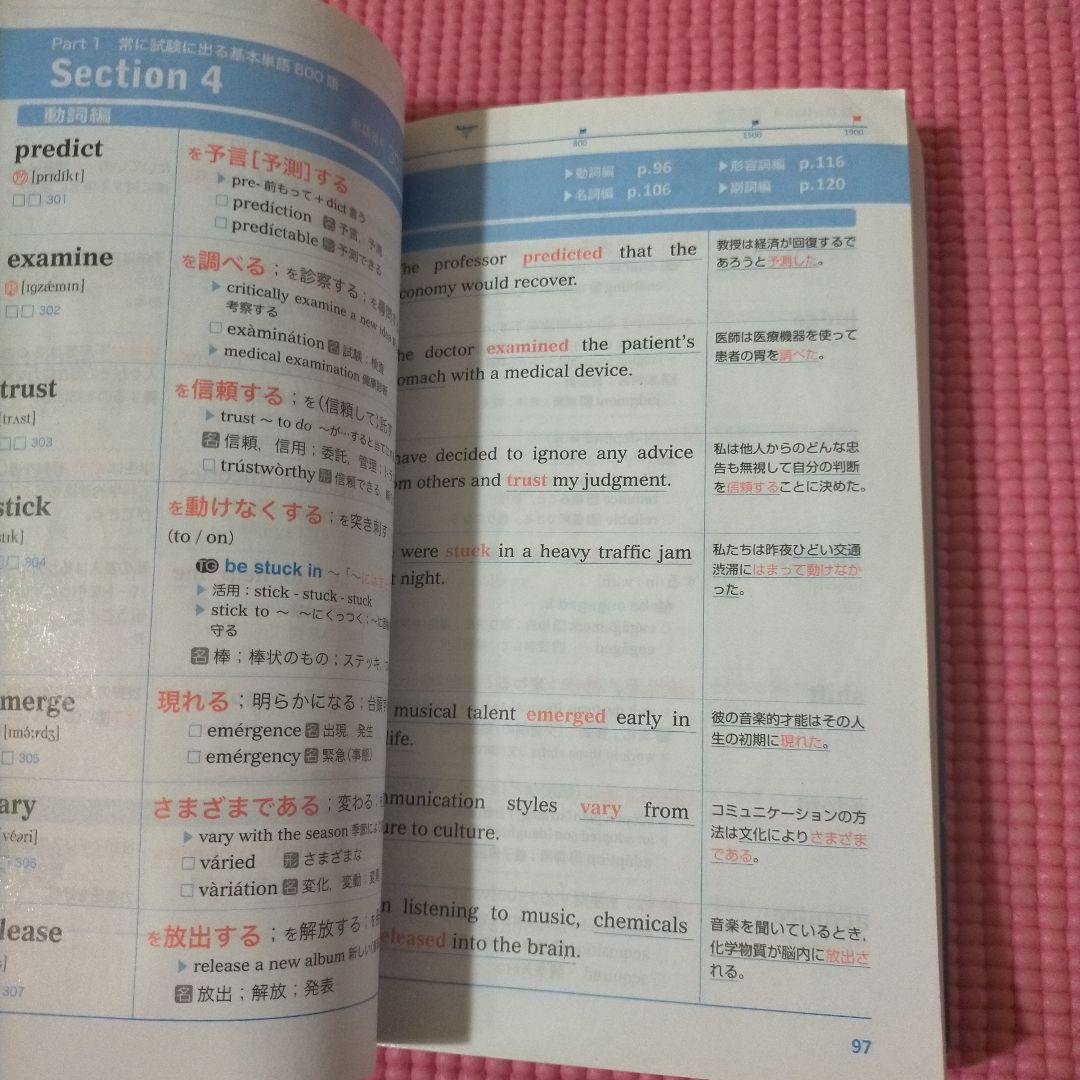 Part 1 常に試験に出る基本単語800語
Section 4
動詞編
predict
[prɪdíkt]
301
を予言[予測]する
pre- 前もって + dict 言う
predíction 名 予言，予測
predíctable 形 予測できる
examine
[ɪgzǽmɪn]
302
を調べる；を診察する；を尋問す
critically examine a new idea
考察する
exàminátion 名 試験；検査
medical examination 健康診断
trust
[trʌst]
303
を信頼する；を(信頼して)託す
trust ~ to do ~が…すると当てに
名 信頼，信用；委託，管理；ト
trústwòrthy 形 信頼できる，
stick
stɪk]
304
を動けなくする；を突き刺す
(to / on)
TG be stuck in ~「~には
活用：stick - stuck - stuck
stick to ~ ~にくっつく；~に
守る
名 棒；棒状のもの；ステッキ，
merge
[ɪmə́ːrdʒ]
305
現れる；明らかになる；台頭す
emérgence 名 出現，発生
emérgency 名 緊急(事態)
ary
véəri]
306
さまざまである；変わる；
vary with the season 季節によ
váried 形 さまざまな
vàriátion 名 変化，変動；変
lease
307
を放出する；を解放する；を
release a new album 新しい
名 放出；解放；発表
800 1500 1900
動詞編 p.96 形容詞編 p.116
名詞編 p.106 副詞編 p.120
he professor predicted that the
conomy would recover.
教授は経済が回復するで
あろうと予測した。
he doctor examined the patient's
omach with a medical device.
医師は医療機器を使って
患者の胃を調べた。
have decided to ignore any advice
om others and trust my judgment.
私は他人からのどんな忠
告も無視して自分の判断
を信頼することに決めた。
were stuck in a heavy traffic jam
t night.
私たちは昨夜ひどい交通
渋滞にはまって動けなか
った。
musical talent emerged early in
life.
彼の音楽的才能はその人
生の初期に現れた。
mmunication styles vary from
ure to culture.
コミュニケーションの方
法は文化によりさまざま
である。
n listening to music, chemicals
eleased into the brain.
音楽を聞いているとき，
化学物質が脳内に放出さ
れる。
97